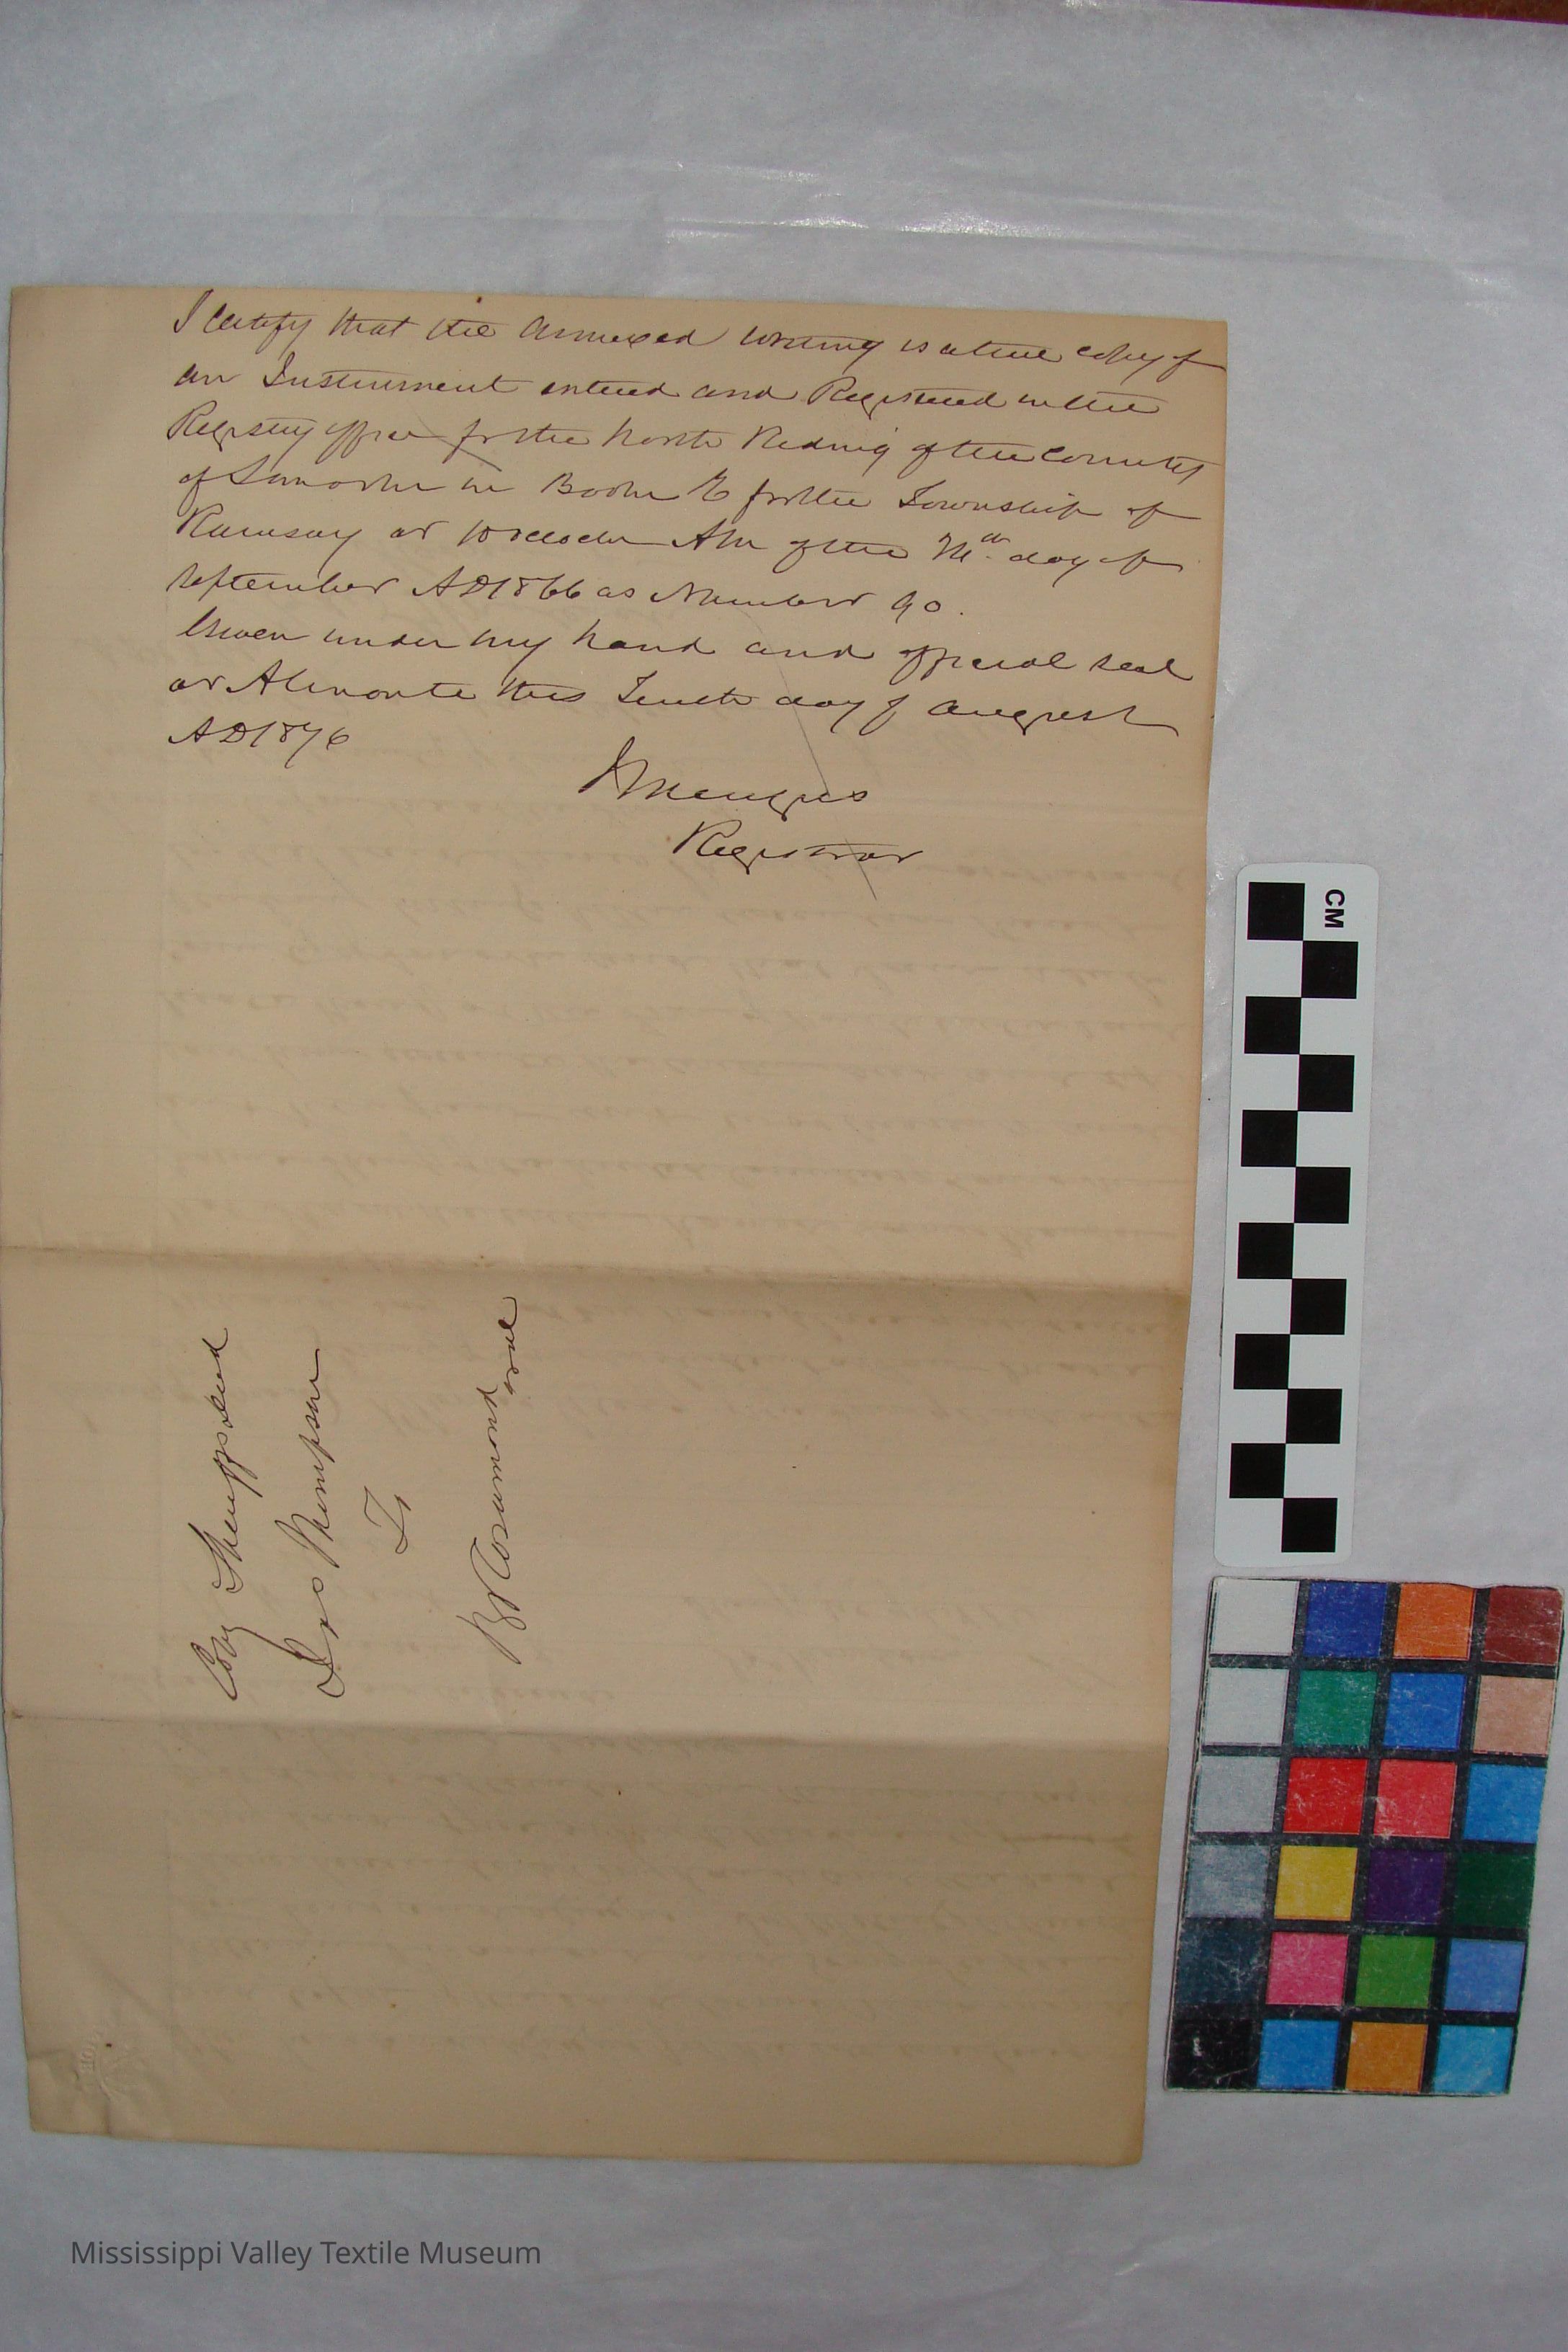 I certify that the annexed writing is a true copy of
an Instrument entered and Registered in the
Registry office for the North Riding of the County
of Lanark in Book E for the Township of
Ramsay at 10 oclock AM of the day of
September AD 1866 as Number 90.
Given under my hand and official seal
at Almonte this Tenth day of August
AD 1876
Menzies
Registrar
Copy
Jas
To
B Rosamond
CM
Mississippi Valley Textile Museum